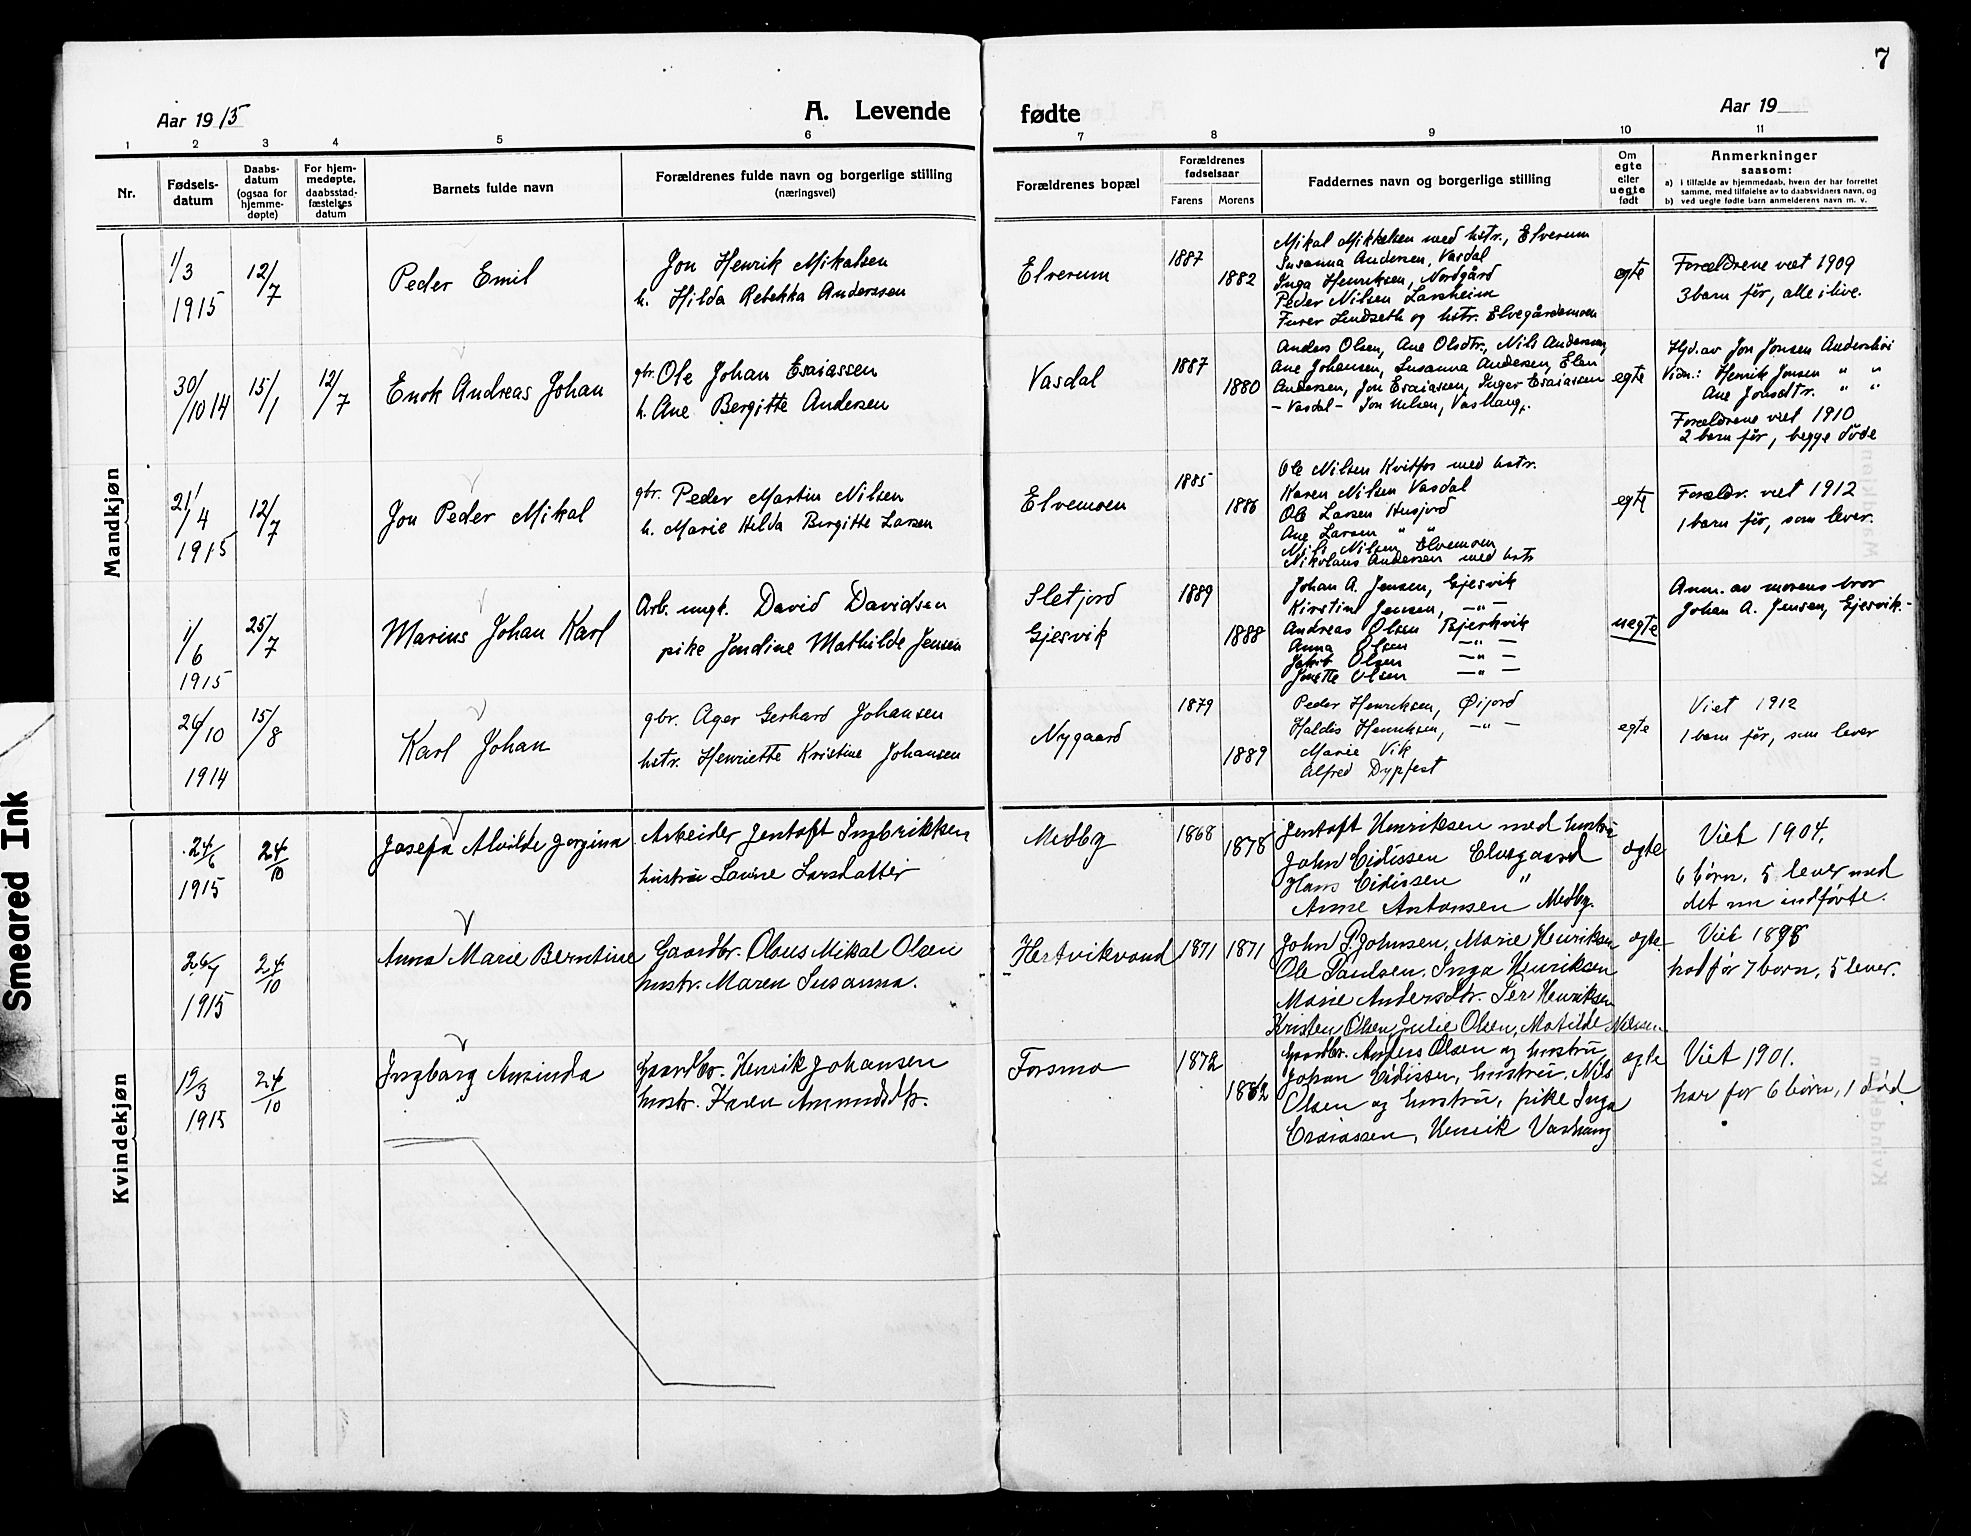 7
Aar 1915
A. Levende fødte
Aar 19
1 2 3 4 5 6 7 8 9 10 11
Nr.
Fødsels-
datum
Daabs-
datum
(ogsaa for
hjemme-
døpte)
For hjem-
medøpte,
daabsstad-
fæstelses
datum
Barnets fulde navn
Forældrenes fulde navn og borgerlige stilling
(næringsvei)
Forældrenes bopæl
Forældrenes
fødselsaar
Farens Morens
Faddernes navn og borgerlige stilling
Om
egte
eller
uegte
født
Anmerkninger
saasom:
a) i tilfælde av hjemmedaab, hvem der har forrettet
samme, med tilføielse av to daabsvidners navn, og
b) ved uegte fødte barn anmelderens navn m. v.
Mandkjøn
1/3
1915
12/7
Peder Emil
Jon Henrik Mikalsen
h. Hilda Rebekka Anderssen
Elverum
1887
1882
Mikal Mikkelsen med hstr., Elverum
Susanna Andersen, Vasdal
Inga Henriksen, Nordgård
Peder Nilsen Larsheim
Furer Lindseth og hstr. Elvegårdsmoen
egte
Forældrene viet 1909
3 barn før, alle i live.
30/10 14
15/1
12/7
Enok Andreas Johan
gbr. Ole Johan Esaiassen
h. Ane Bergitte Andersen
Vasdal
1887
1880
Anders Olsen, Ane Olsdtr., Nils Andersen,
Ane Johansen, Susanna Andersen, Elen
Andersen, Jon Esaiasen, Inger Esaiassen
- Vasdal - Jon Nilsen, Vashaug.
egte
Hjd. av Jon Jonsen
Vidn.: Henrik Jonsen " "
Ane Jonsdtr. " "
Forældrene viet 1910
2 barn før, begge døde
21/4
1915
12/7
Jon Peder Mikal
gbr. Peder Martin Nilsen
h. Marie Hilda Bergitte Larsen
Elvemoen
1885
1886
Ole Nilsen Kvitfos med hstr.
Karen Nilsen Vasdal
Ole Larsen Husjord
Ane Larsen " "
Nils Nilsen Elvemoen
Nikolaus Andersen med hstr
egte
Forældr. viet 1912
1 barn før, som lever.
1/6
1915
25/7
Marius Johan Karl
Arb. ungk. David Davidsen
pike Jondine Mathilde Jensen
Sletjord
Gjesvik
1889
1888
Johan A. Jensen, Gjesvik
Kirstine Jensen, -"-
Andreas Olsen Bjerkvik
Anna Olsen -"-
Jakob Olsen -"-
Jonette Olsen -"-
uegte
Anm. av morens bror
Johan A. Jensen, Gjesvik.-
26/10
1914
15/8
Karl Johan
gbr. Ager Gerhard Johansen
hstr. Henriette Kristine Johansen
Nygaard
1879
1889
Peder Henriksen, Øijord
Haldis Henriksen, -"-
Marie Vik
Alfred Dypfest
egte
Viet 1912
1 barn før, som lever
Kvindekjøn
24/6
1915
24/10
Josefa Alvilde Jorgina
Arbeider Jentoft Ingbrikksen
hustru Lovise Larsdatter
Medby
1868
1878
Jentoft Henriksen med hustru
John Eidissen Elvegaard
Hans Eidissen "
Anne Antonsen Medby.
ægte
Viet 1904.
6 børn. 5 lever med
det nu indførte.
26/7
1915
24/10
Anna Marie Berntine
Gaardbr. Olaus Mikal Olsen
hustr. Maren Susanna.
Hertvikvand
1871
1871
John P. Johnsen, Marie Henriksen
Ole Paulsen. Inga Henriksen
Marie Andersdtr. Per Henriksen
Kristen Olsen Julie Olsen, Matilde Nilsen
ægte
Viet 1898
had før 7 børn, 5 lever.
19/3
1915
24/10
Ingbørg Amanda
Gaardbr. Henrik Johansen
hustr. Karen Amundsdtr.
Forsmo
1872
1882
Gaardbr. Anders Olsen og hustru,
Johan Eidissen, hustru. Nils
Olsen og hustru, pike Inga
Esaiassen, Henrik Vashaug
ægte
Viet 1901.
har før 6 børn, 1 død.
Smeared Ink